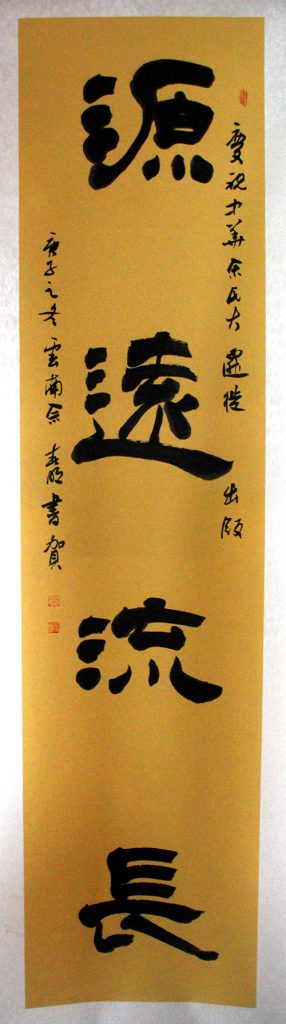 慶祝中華余氏大 遷徙 出版
源遠流長
庚子之冬雲南余 書賀